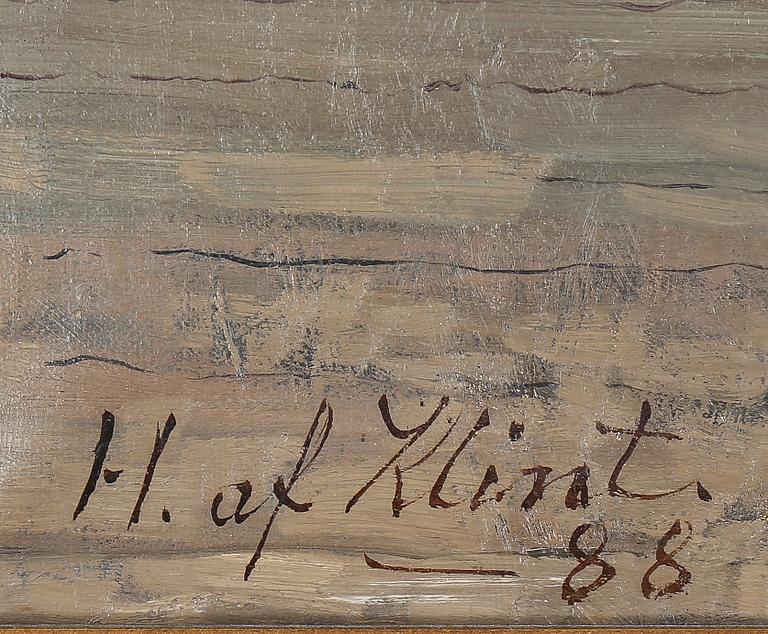 H. af Klint.
88